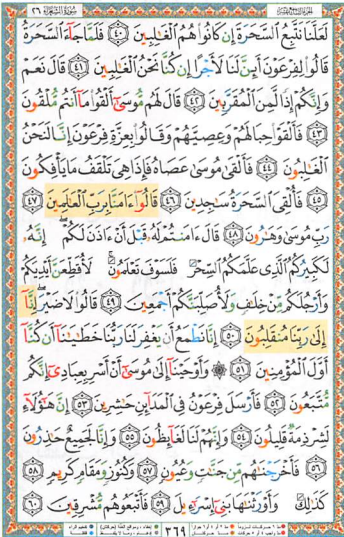 سُورَةُ الشُّعَرَاءِ ٢٦
لَعَلَّنَا نَتَّبِعُ ٱلسَّحَرَةَ إِن كَانُوا۟ هُمُ ٱلْغَٰلِبِينَ ٤٠ فَلَمَّا جَآءَ ٱلسَّحَرَةُ
قَالُوا۟ لِفِرْعَوْنَ أَئِنَّ لَنَا لَأَجْرًا إِن كُنَّا نَحْنُ ٱلْغَٰلِبِينَ ٤١ قَالَ نَعَمْ
وَإِنَّكُمْ إِذًا لَّمِنَ ٱلْمُقَرَّبِينَ ٤٢ قَالَ لَهُم مُّوسَىٰٓ أَلْقُوا۟ مَآ أَنتُم مُّلْقُونَ
٤٣ فَأَلْقَوْا۟ حِبَالَهُمْ وَعِصِيَّهُمْ وَقَالُوا۟ بِعِزَّةِ فِرْعَوْنَ إِنَّا لَنَحْنُ
ٱلْغَٰلِبُونَ ٤٤ فَأَلْقَىٰ مُوسَىٰ عَصَاهُ فَإِذَا هِىَ تَلْقَفُ مَا يَأْفِكُونَ
٤٥ فَأُلْقِىَ ٱلسَّحَرَةُ سَٰجِدِينَ ٤٦ قَالُوٓا۟ ءَامَنَّا بِرَبِّ ٱلْعَٰلَمِينَ ٤٧
رَبِّ مُوسَىٰ وَهَٰرُونَ ٤٨ قَالَ ءَامَنتُمْ لَهُۥ قَبْلَ أَنْ ءَاذَنَ لَكُمْ ۖ إِنَّهُۥ
لَكَبِيرُكُمُ ٱلَّذِى عَلَّمَكُمُ ٱلسِّحْرَ فَلَسَوْفَ تَعْلَمُونَ ۚ لَأُقَطِّعَنَّ أَيْدِيَكُمْ
وَأَرْجُلَكُم مِّنْ خِلَٰفٍ وَلَأُصَلِّبَنَّكُمْ أَجْمَعِينَ ٤٩ قَالُوا۟ لَا ضَيْرَ ۖ إِنَّآ
إِلَىٰ رَبِّنَا مُنقَلِبُونَ ٥٠ إِنَّا نَطْمَعُ أَن يَغْفِرَ لَنَا رَبُّنَا خَطَٰيَٰنَآ أَن كُنَّآ
أَوَّلَ ٱلْمُؤْمِنِينَ ٥١ ۞ وَأَوْحَيْنَآ إِلَىٰ مُوسَىٰٓ أَنْ أَسْرِ بِعِبَادِىٓ إِنَّكُم
مُّتَّبَعُونَ ٥٢ فَأَرْسَلَ فِرْعَوْنُ فِى ٱلْمَدَآئِنِ حَٰشِرِينَ ٥٣ إِنَّ هَٰٓؤُلَآءِ
لَشِرْذِمَةٌ قَلِيلُونَ ٥٤ وَإِنَّهُمْ لَنَا لَغَآئِظُونَ ٥٥ وَإِنَّا لَجَمِيعٌ حَٰذِرُونَ
٥٦ فَأَخْرَجْنَٰهُم مِّن جَنَّٰتٍ وَعُيُونٍ ٥٧ وَكُنُوزٍ وَمَقَامٍ كَرِيمٍ ٥٨
كَذَٰلِكَ وَأَوْرَثْنَٰهَا بَنِىٓ إِسْرَٰٓءِيلَ ٥٩ فَأَتْبَعُوهُم مُّشْرِقِينَ ٦٠
٣٦٩